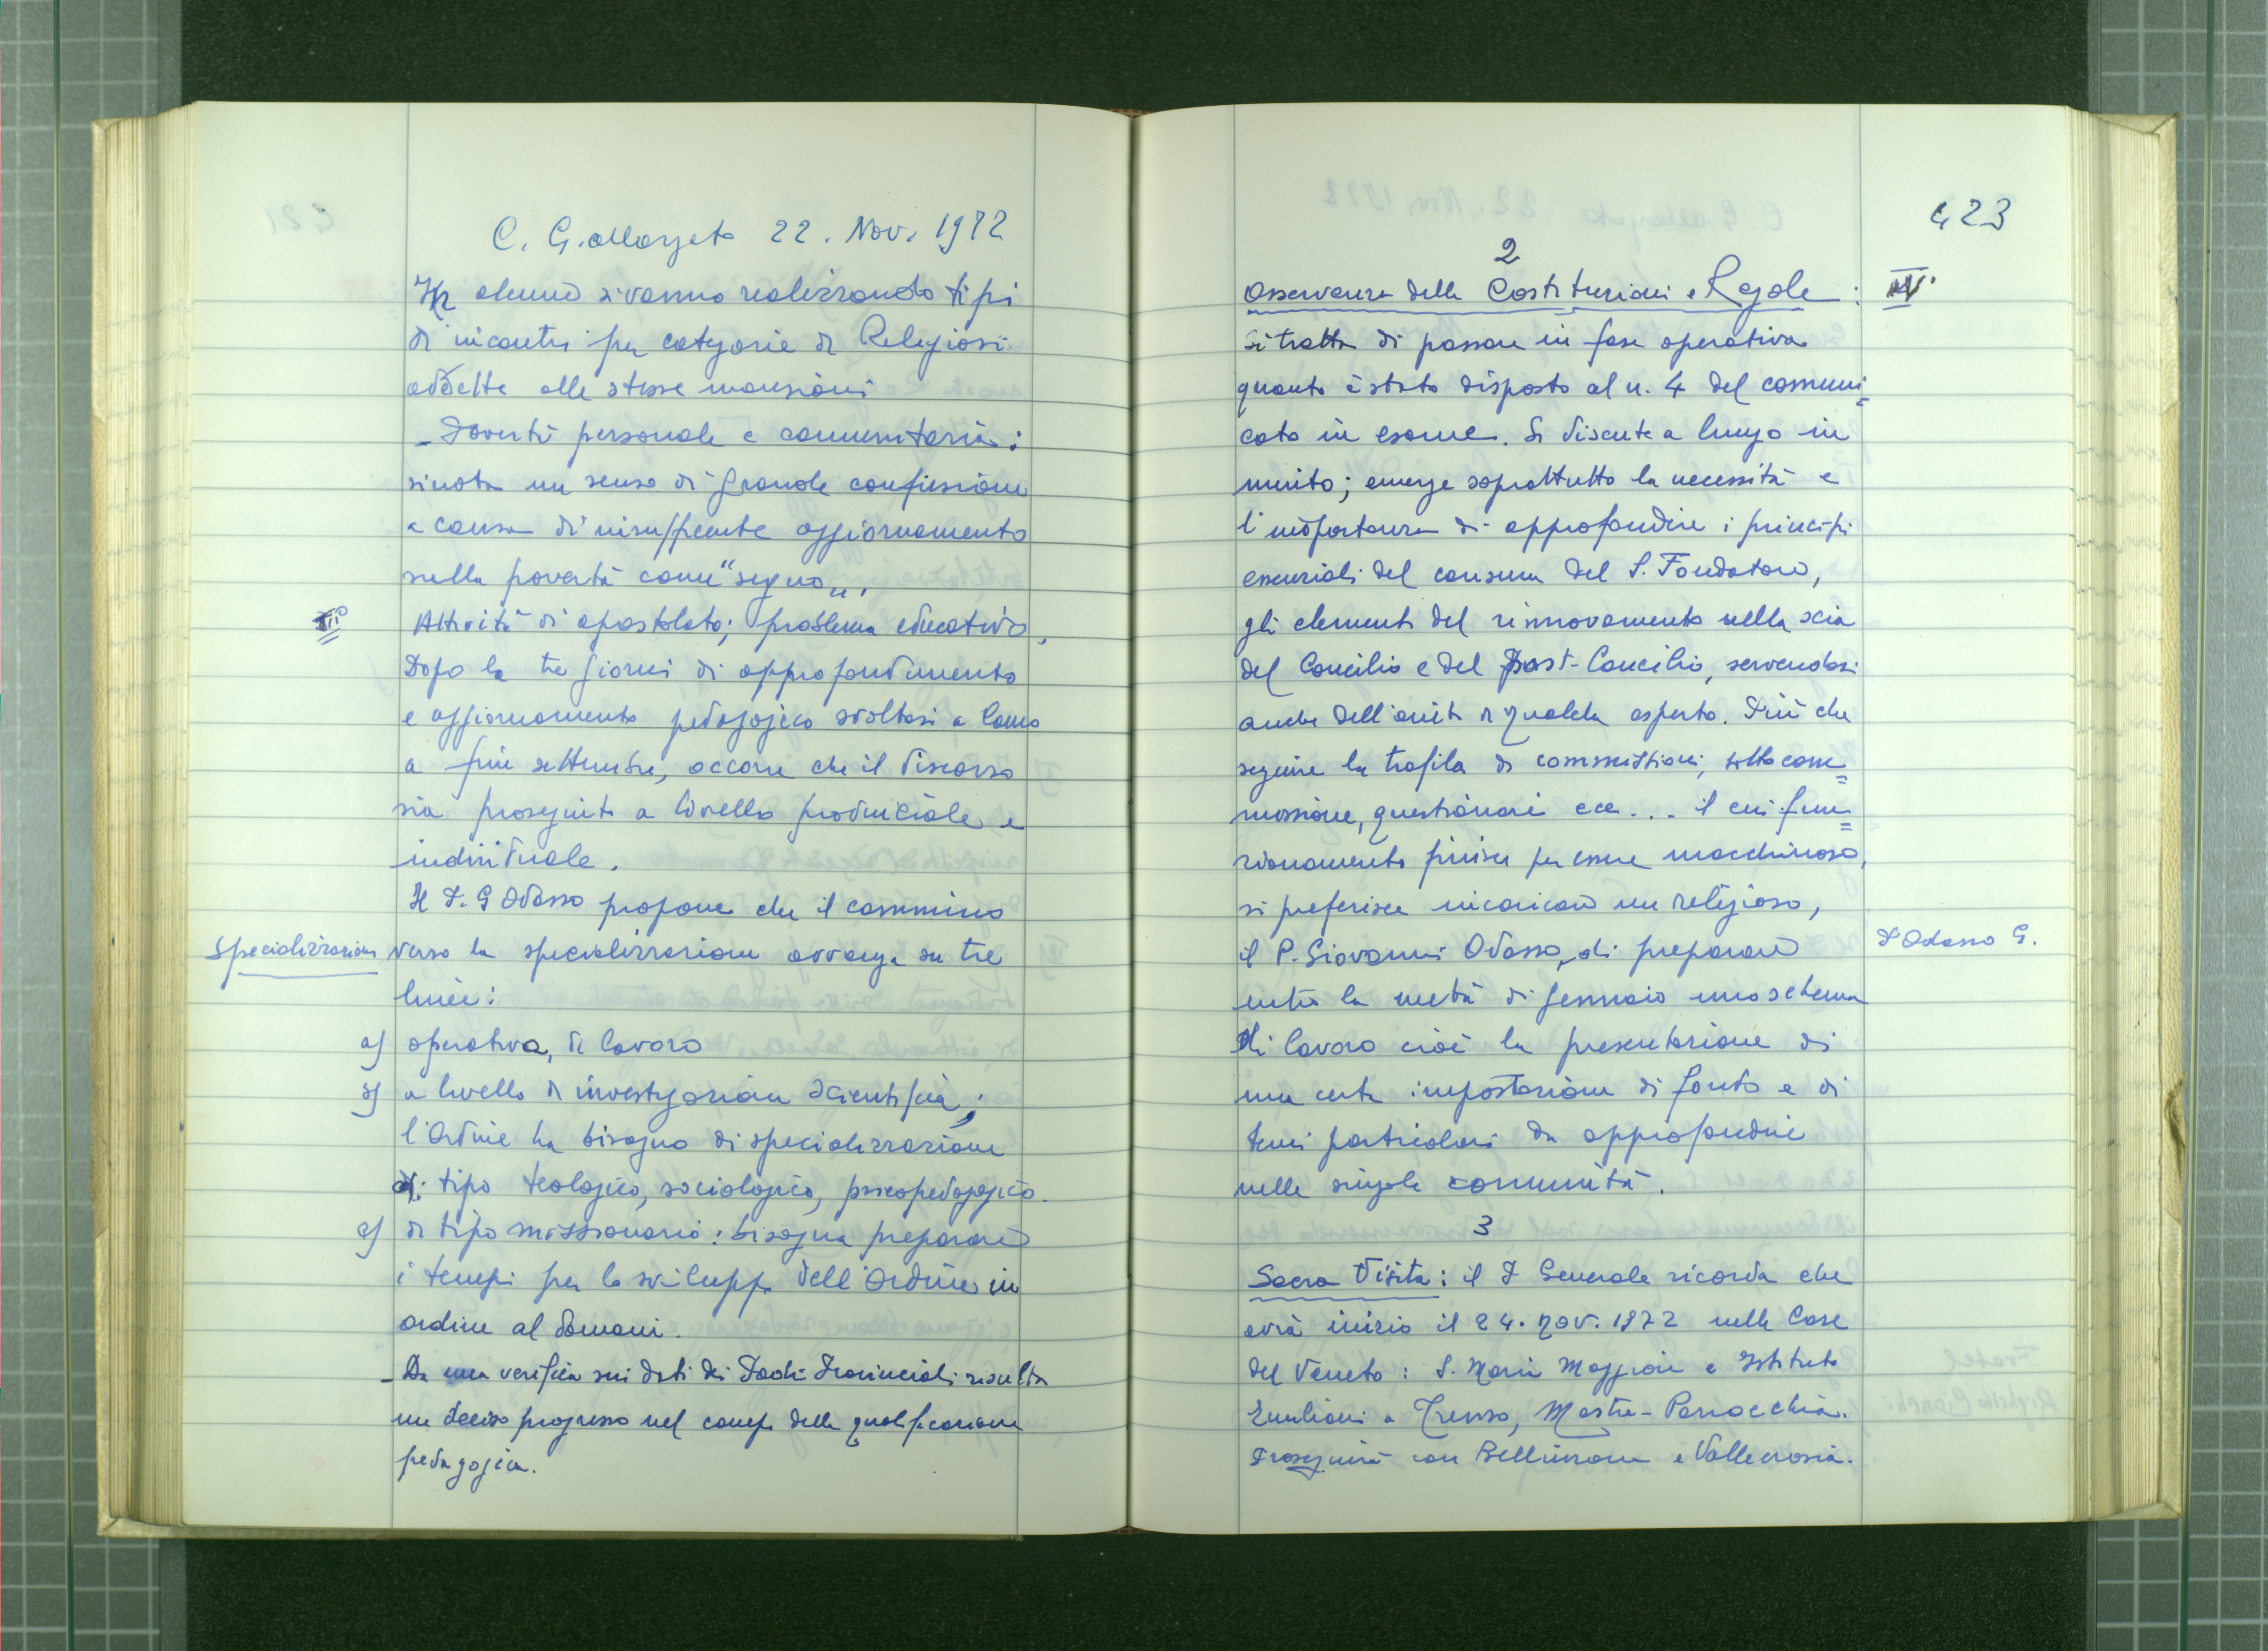 C. G. allargato 22. Nov. 1972
In alcune si vanno realizzando tipi
di incontri per categorie di Religiosi
addette alle stesse mansioni
- Povertà personale e comunitaria:
si nota un senso di grande confusione
a causa di insufficiente aggiornamento
sulla povertà come "segno".
III° Attività di apostolato; problema educativo.
Dopo la tre giorni di approfondimento
e aggiornamento pedagogico svoltasi a Como
a fine settembre, occorre che il discorso
sia proseguito a livello provinciale e
individuale.
Il P. G Odasso propone che il cammino
Specializzazione verso la specializzazione avvenga su tre
linee:
a) operativa, di lavoro
b) a livello di investigazione scientifica;
l'Ordine ha bisogno di specializzazione
di tipo teologico, sociologico, psicopedagogico.
c) di tipo missionario: bisogna preparare
i tempi per lo sviluppo dell'Ordine in
ordine al domani.
- Da una verifica sui dati dei Padri Provinciali risulta
un deciso progresso nel campo della qualificazione
pedagogica.
423
2
Osservanza delle Costituzioni e Regole: IV°
Si tratta di passare in fase operativa
quanto è stato disposto al n. 4 del comuni=
cato in esame. Si discute a lungo in
merito; emerge soprattutto la necessità e
l'importanza di approfondire i principi
essenziali del carisma del S. Fondatore,
gli elementi del rinnovamento nella scia
del Concilio e del Post-Concilio, servendosi
anche dell'aiuto di qualche esperto. Più che
seguire la trafila di commissioni, sottocom=
missione, questionari ecc... il cui fun=
zionamento finisce per essere macchinoso,
si preferisce incaricare un religioso,
il P. Giovanni Odasso, di preparare P Odasso G.
entro la metà di gennaio uno schema
di lavoro cioè la presentazione di
una certa impostazione di fondo e di
temi particolari da approfondire
nelle singole comunità.
3
Sacra Visita: il P Generale ricorda che
avrà inizio il 24. nov. 1972 nelle Case
del Veneto: S. Maria Maggiore e Istituto
Emiliani a Treviso, Mestre-Parrocchia.
Proseguirà con Bellinzona e Vallecrosia.